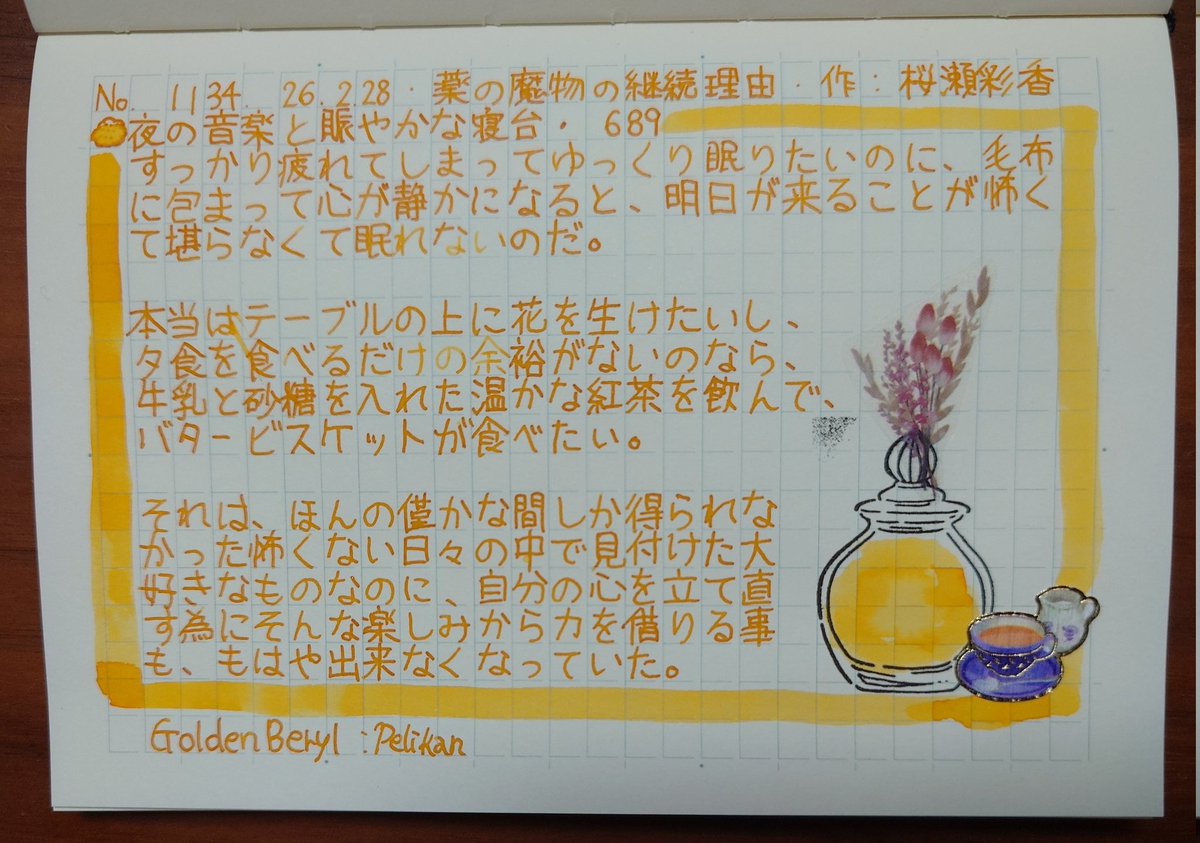 No. 1134. 26.2.28・薬の魔物の継続理由・作:桜瀬彩香
夜の音楽と賑やかな寝台・ 689
すっかり疲れてしまってゆっくり眠りたいのに、毛布
に包まって心が静かになると、明日が来ることが怖く
て堪らなくて眠れないのだ。
本当はテーブルの上に花を生けたいし、
夕食を食べるだけの余裕がないのなら、
牛乳と砂糖を入れた温かな紅茶を飲んで、
バタービスケットが食べたい。
それは、ほんの僅かな間しか得られな
かった怖くない日々の中で見付けた大
好きなものなのに、自分の心を立て直
す為にそんな楽しみから力を借りる事
も、もはや出来なくなっていた。
Golden Beryl :Pelikan